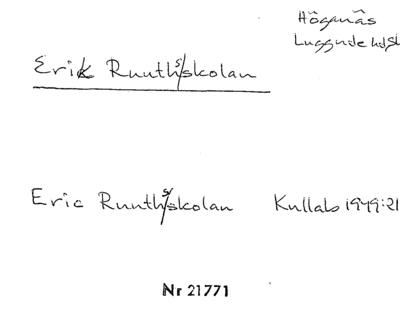 Höganäs
Luggude hd, sk
Erik Ruuths/skolan
Eric Ruuths/skolan Kullab 1949:21
Nr 21771